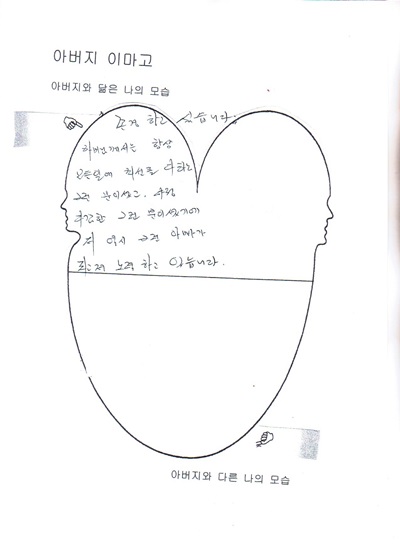 아버지 이마고
아버지와 닮은 나의 모습
존경 하고 있습니다.
아버님께서는 항상
모든일에 최선을 다하는
그런 분이셨고,
그런 분이셨기에
저 역시 그런 아빠가
되는저 노력 하고 있습니다.
아버지와 다른 나의 모습